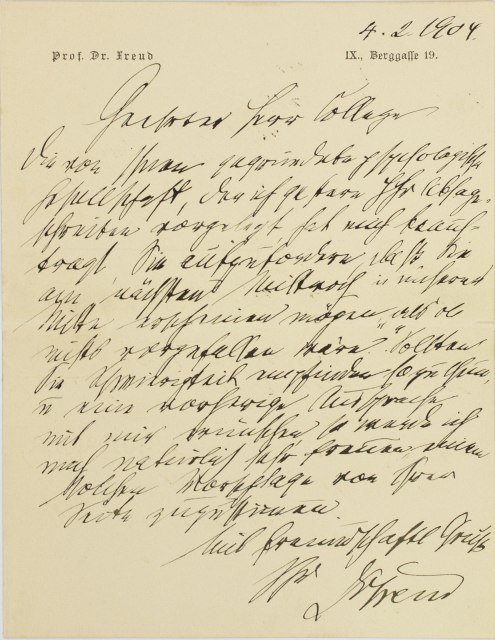 4. 2. 1904.
Prof. Dr. Freud IX., Berggasse 19.
Geehrter Herr College
Die von Ihnen gegründete psychologische
Gesellschaft, der ich gestern Ihr Absage-
schreiben vorgelegt hat mich beauf-
tragt Sie aufzufordern, daß Sie
am nächsten Mittwoch in unserer
Mitte erscheinen mögen, „als ob
nichts vorgefallen wäre". Sollten
Sie Schwierigkeit empfinden so zu thun,
u eine vorherige Aussprache
mit mir wünschen so werde ich
mich natürlich sehr freuen einem
solchen Vorschlage von Ihrer
Seite zuzustimmen
Mit freundschaftl Gruß
Ihr DrFreud